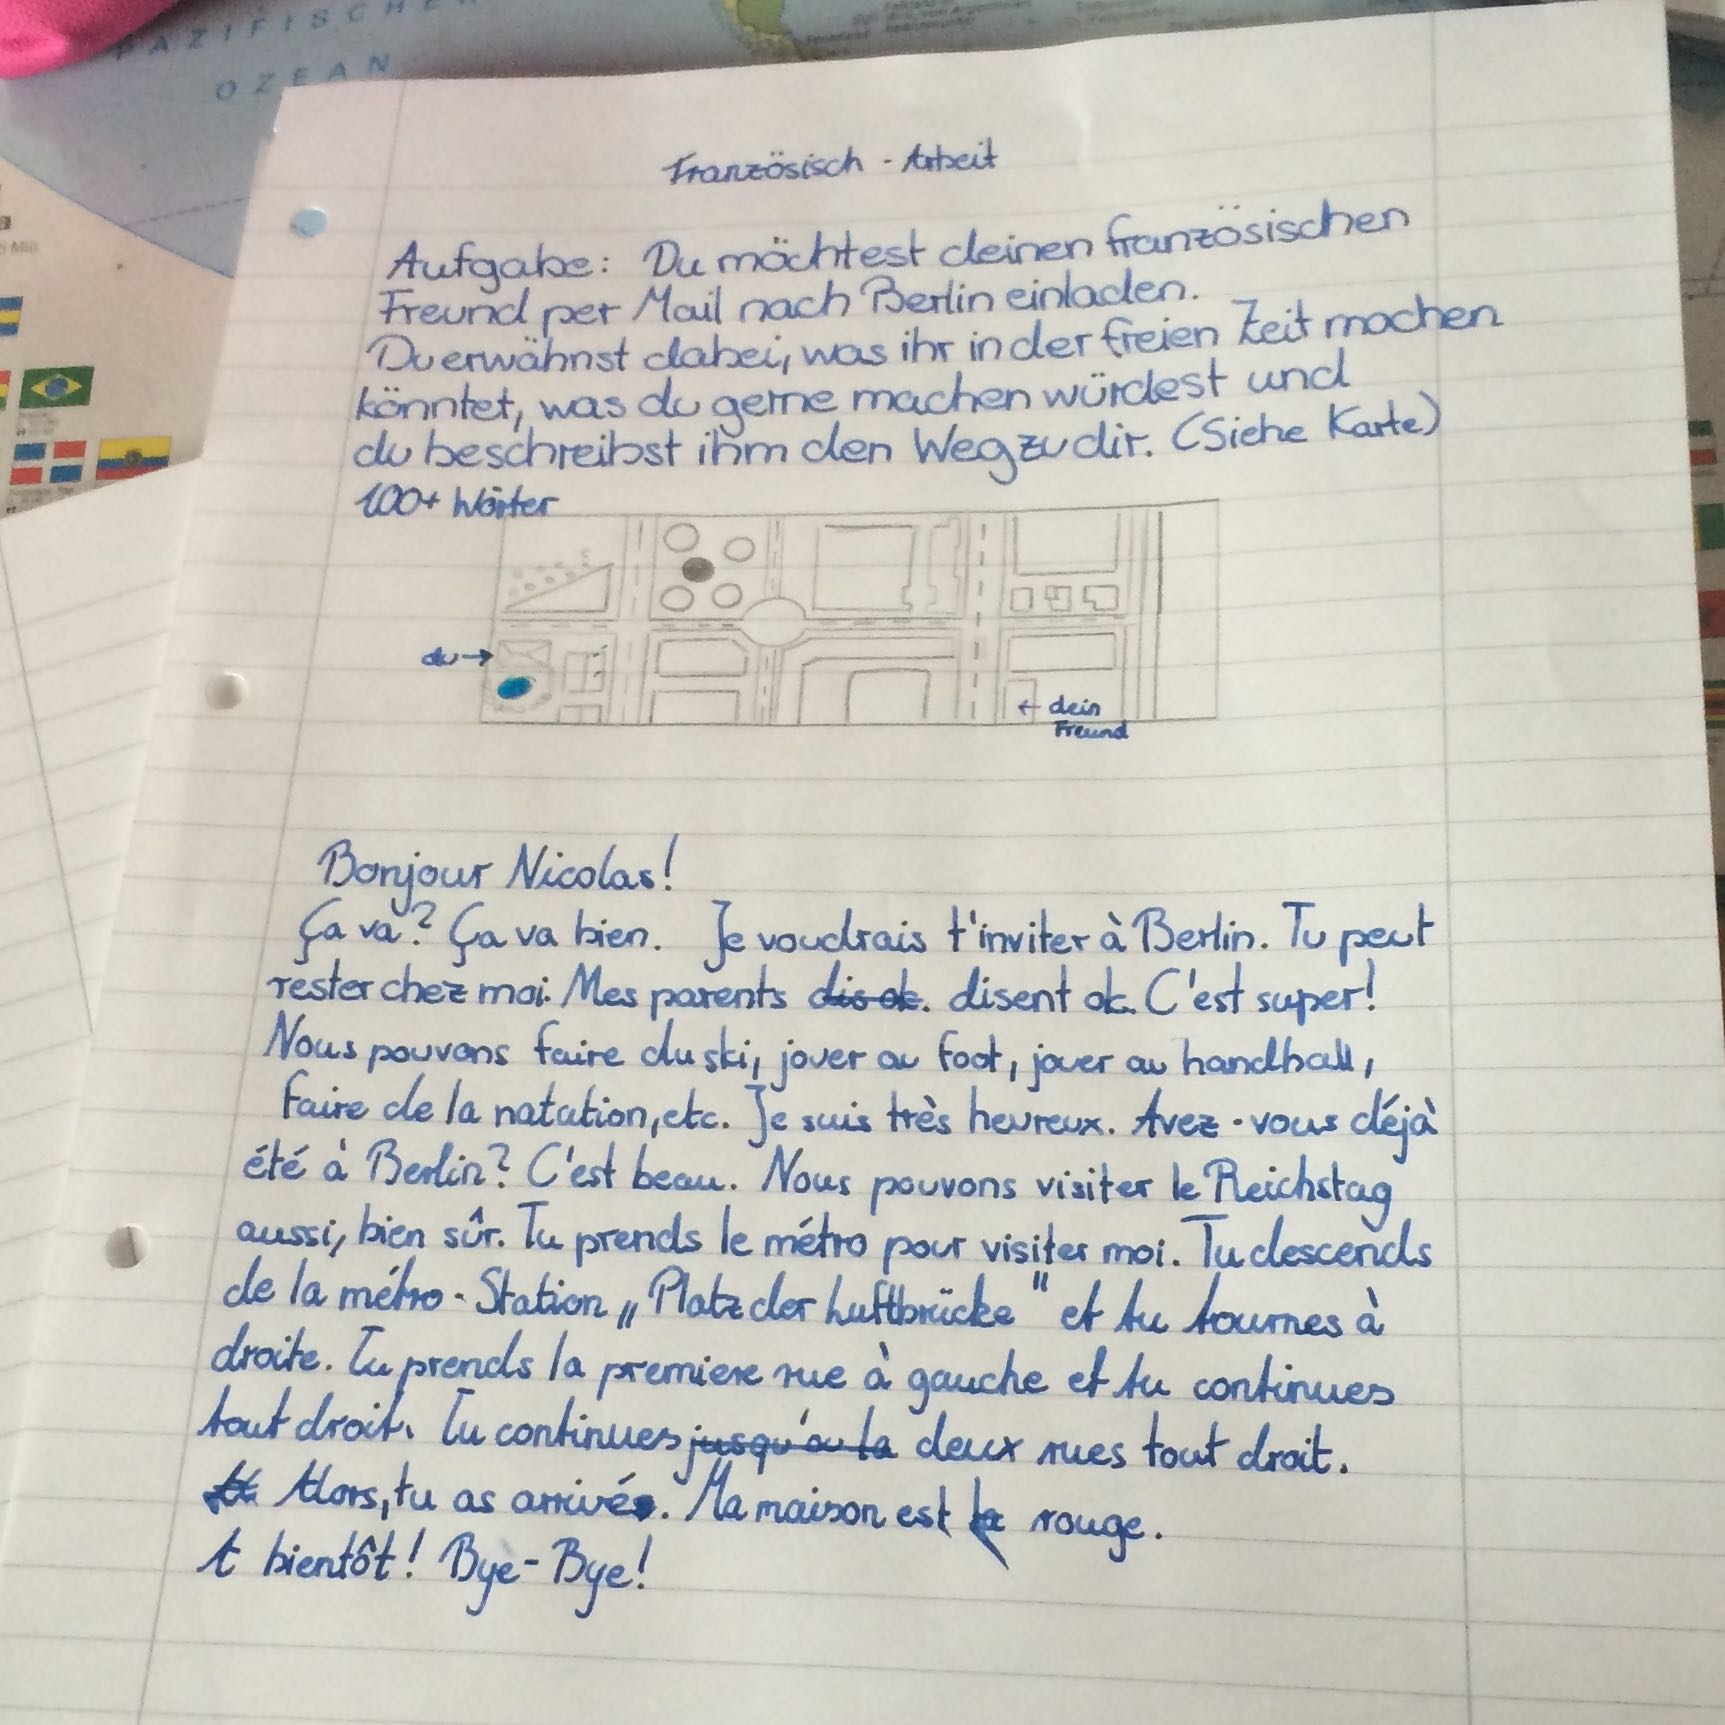 PAZIFISCHER
OZEAN
Französisch - Arbeit
Aufgabe: Du möchtest deinen französischen
Freund per Mail nach Berlin einladen.
Du erwähnst dabei, was ihr in der freien Zeit machen
könntet, was du gerne machen würdest und
du beschreibst ihm den Weg zu dir. (Siehe Karte)
100+ Wörter
du →
← dein
Freund
Bonjour Nicolas!
Ça va? Ça va bien. Je voudrais t'inviter à Berlin. Tu peut
rester chez moi. Mes parents dis ok. disent ok. C'est super!
Nous pouvons faire du ski, jouer au foot, jouer au handball,
faire de la natation, etc. Je suis très heureux. Avez-vous déjà
été à Berlin? C'est beau. Nous pouvons visiter le Reichstag
aussi, bien sûr. Tu prends le métro pour visiter moi. Tu descends
de la métro-Station „Platz der Luftbrücke" et tu tournes à
droite. Tu prends la premiere rue à gauche et tu continues
tout droit. Tu continues jusqu'au la deux rues tout droit.
Alors, tu as arrivé. Ma maison est la rouge.
A bientôt! Bye-Bye!